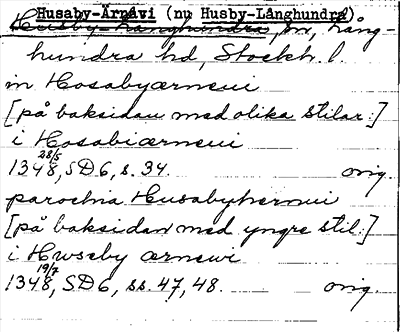 Husaby-Ärnavi (nu Husby-Långhundra)
Husby-Långhundra, sn, Lång-
hundra hd, Stockh. l.
in Hosabyærnewi
[på baksidan med olika stilar:]
i Hosabiærnewi
1348 28/5, SD 6, s. 34. orig.
parochia Husabyhernwi
[på baksidan med yngre stil:]
i Hwseby ærnewi
1348 19/7, SD 6, ss. 47, 48. orig.